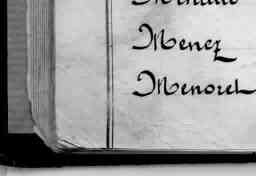 Menez
Menoret